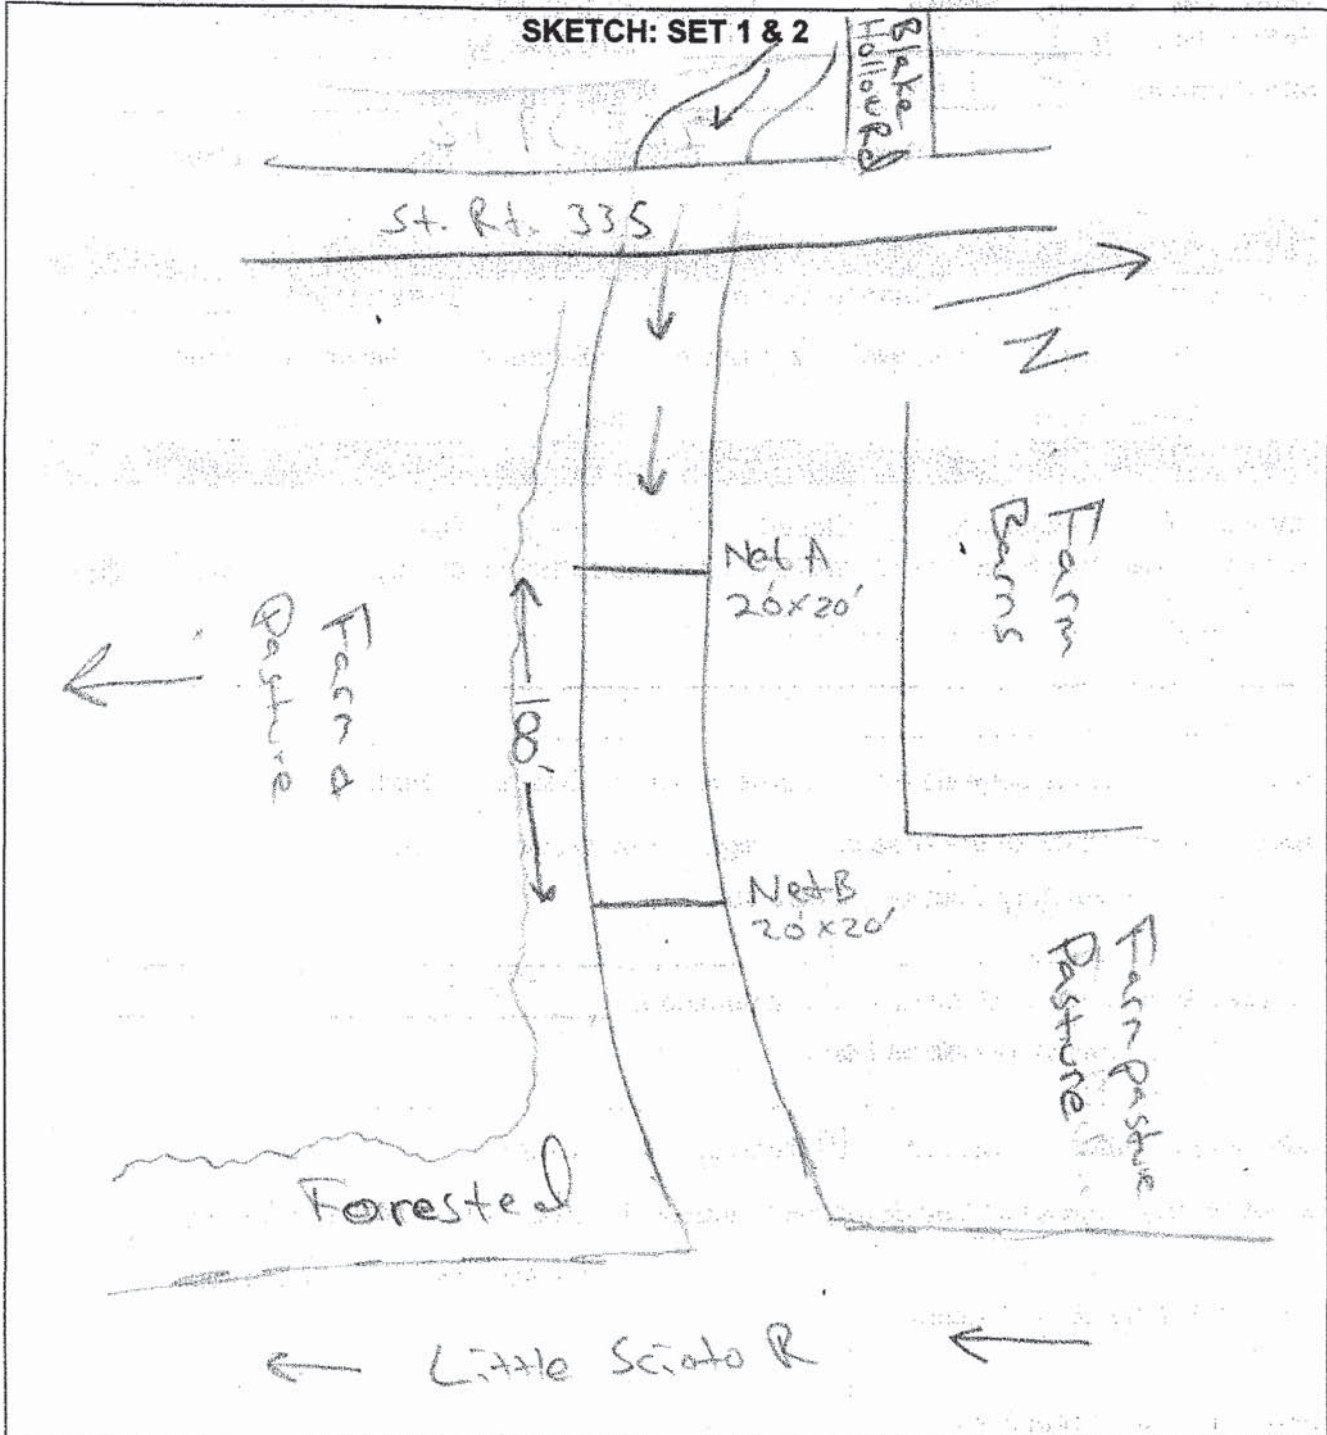 SKETCH: SET 1 & 2
Blake
Hollow Rd
St. Rt. 335
N
Net A
20'x20'
Farm
Barns
Farm &
Pasture
18'
Net B
20'x20'
Farm pasture
Pasture
Forested
Little Scioto R